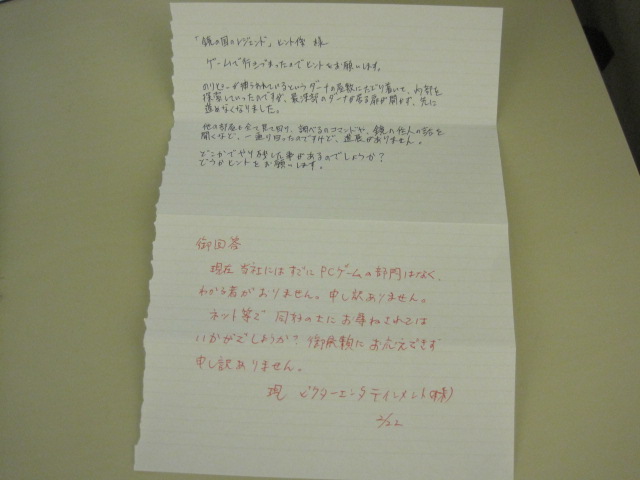 「鏡の国のレジェンド」ヒント係 様
ゲームで行きづまったのでヒントをお願いします。
のりピーが捕らわれているというダーナの屋敷にたどり着いて、内部を
探索していったのですが、最深部のダーナが居る扉が開かず、先に
進めなくなりました。
他の部屋も全て見て回り、調べるのコマンドや、鏡の住人の話を
聞くなど、一通り行ったのですけど、進展がありません。
どこかでやり残した事があるのでしょうか？
どうかヒントをお願いします。
御回答
現在当社にはすでにPCゲームの部門はなく、
わかる者がおりません。申し訳ありません。
ネット等で同好の士にお尋ねされては
いかがでしょうか？御依頼にお応えできず
申し訳ありません。
現 ビクターエンタテインメント(株)
2/22